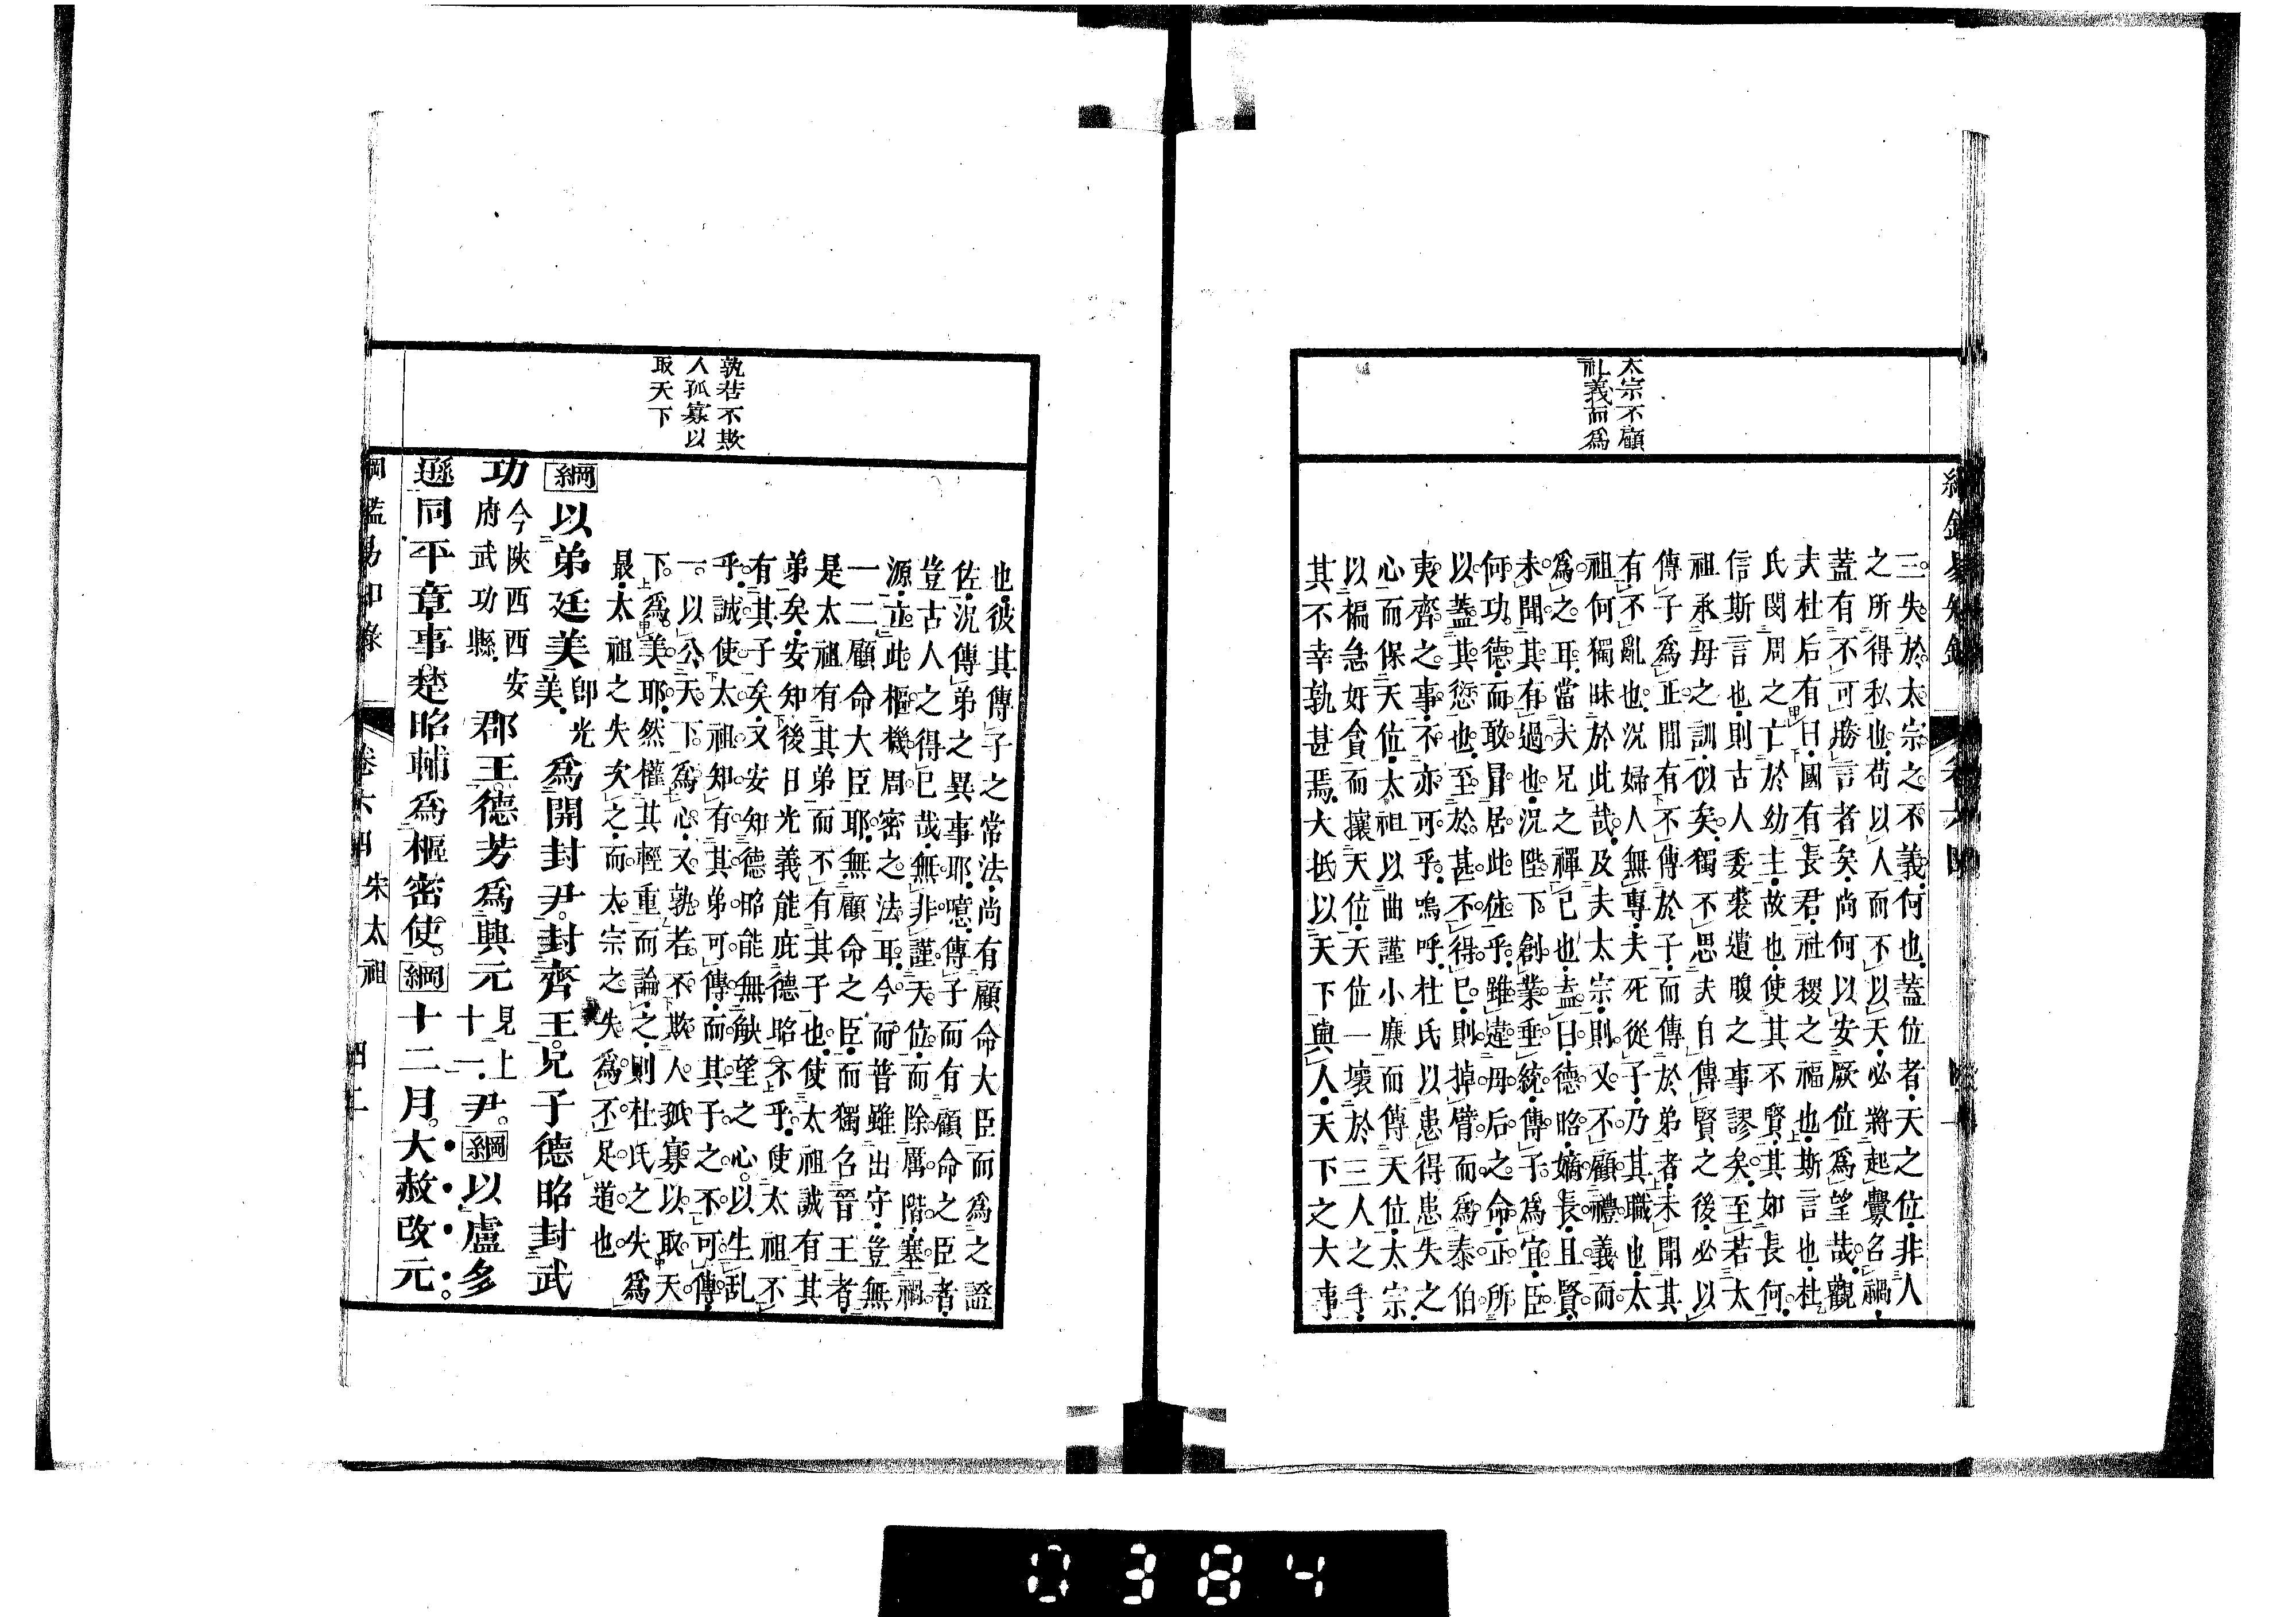 太宗不顧
礼義而爲
三失於太宗之不義何也蓋位者天之位非人
之所得私也苟以人而不以天必將起釁召禍
蓋有不可勝言者矣尚何以安厥位爲望哉觀
夫杜后有曰國有長君社稷之福也斯言也杜
氏閔周之亡於幼主故也使其不賢其如長何
信斯言也則古人委裘遺腹之事謬矣至若太
祖承母之訓似矣獨不思夫自傳賢之後必以
傳子爲正間有不傳於子而傳於弟者未聞其
有不亂也況婦人無專夫死從子乃其職也太
祖何獨昧於此哉及夫太宗則又不顧禮義而
爲之耳當夫兄之禪已也盍曰德昭嫡長且賢
未聞其有過也況陛下創業垂統傳子爲宜臣
何功德而敢冒居此位乎雖違母后之命正所
以蓋其愆也至於甚不得已則掉臂而爲泰伯
夷齊之事不亦可乎嗚呼杜氏以患得患失之
心而保天位太祖以曲謹小廉而傳天位太宗
以褊急好貪而攘天位天位一壞於三人之手
其不幸孰甚焉大抵以天下與人天下之大事
孰若不欺
人孤寡以
取天下
也彼其傳子之常法尚有顧命大臣而爲之證
佐況傳弟之異事耶噫傳子而有顧命之臣者
豈古人之得已哉無非謹天位而除厲階塞禍
源立此樞機周密之法耳今而普雖出守豈無
一二顧命大臣耶無顧命之臣而獨召晉王者
是太祖有其弟而不有其子也使太祖誠有其
弟矣安知後日光義能庇德昭不乎使太祖不
有其子矣又安知德昭能無觖望之心以生乱
乎誠使太祖知有其弟可傳而其子之不可傳
一以公天下爲心又孰若不欺人孤寡以取天
下爲美耶然權其輕重而論之則杜氏之失爲
最太祖之失次之而太宗之失爲不足道也
綱以弟廷美即光美爲開封尹封齊王兄子德昭封武
功今陝西西安府武功縣郡王德芳爲興元見上十一尹綱以盧多
遜同平章事楚昭輔爲樞密使綱十二月大赦改元
綱鑑易知錄 卷六四 宋太祖